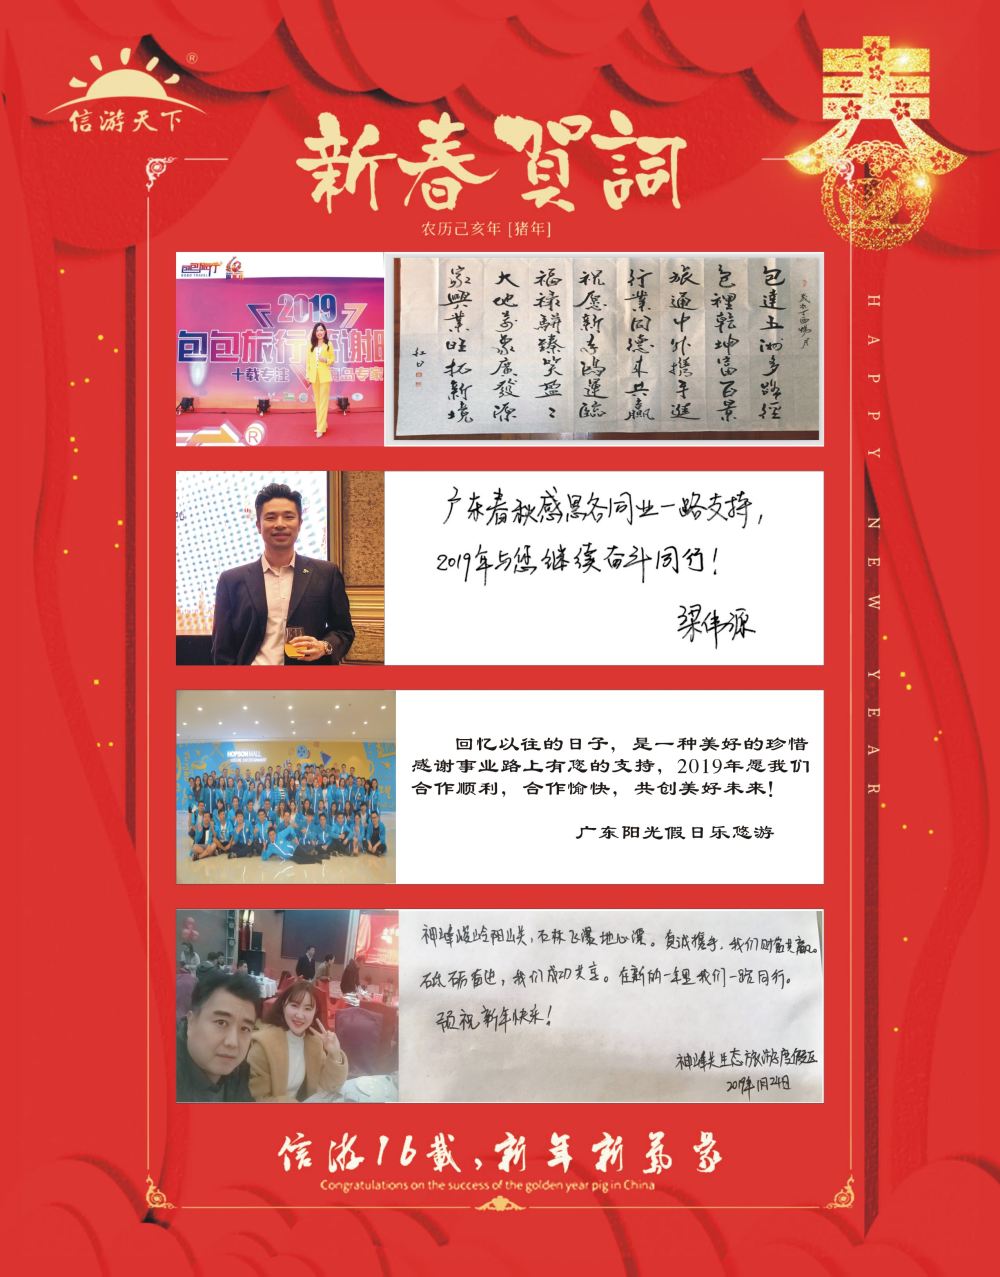 信游天下
®
春
新春贺詞
农历己亥年 [猪年]
包包旅行
2019
包包旅行
十载专注
岛专家
®
包達五洲多路徑
包裡乾坤富百景
旅通中外攜手進
行業同德來共贏
祝愿新春鴻運臨
福祿駢臻笑盈盈
大地萬象廣發源
家興業旺拓新境
广东春秋感恩各同业一路支持，
2019年与您继续奋斗同行！
梁伟源
HOPSON MALL
回忆以往的日子，是一种美好的珍惜
感谢事业路上有您的支持，2019年愿我们
合作顺利，合作愉快，共创美好未来！
广东阳光假日乐悠游
神峰峻岭阳山关，石林飞瀑地心漂。真诚携手，我们财富共赢。
砥砺奋进，我们成功共享。在新的一年里我们一路同行。
预祝新年快乐！
神峰关生态旅游度假区
2019年1月24日
HAPPY NEW YEAR
信游16载，新年新氣象
Congratulations on the success of the golden year pig in China